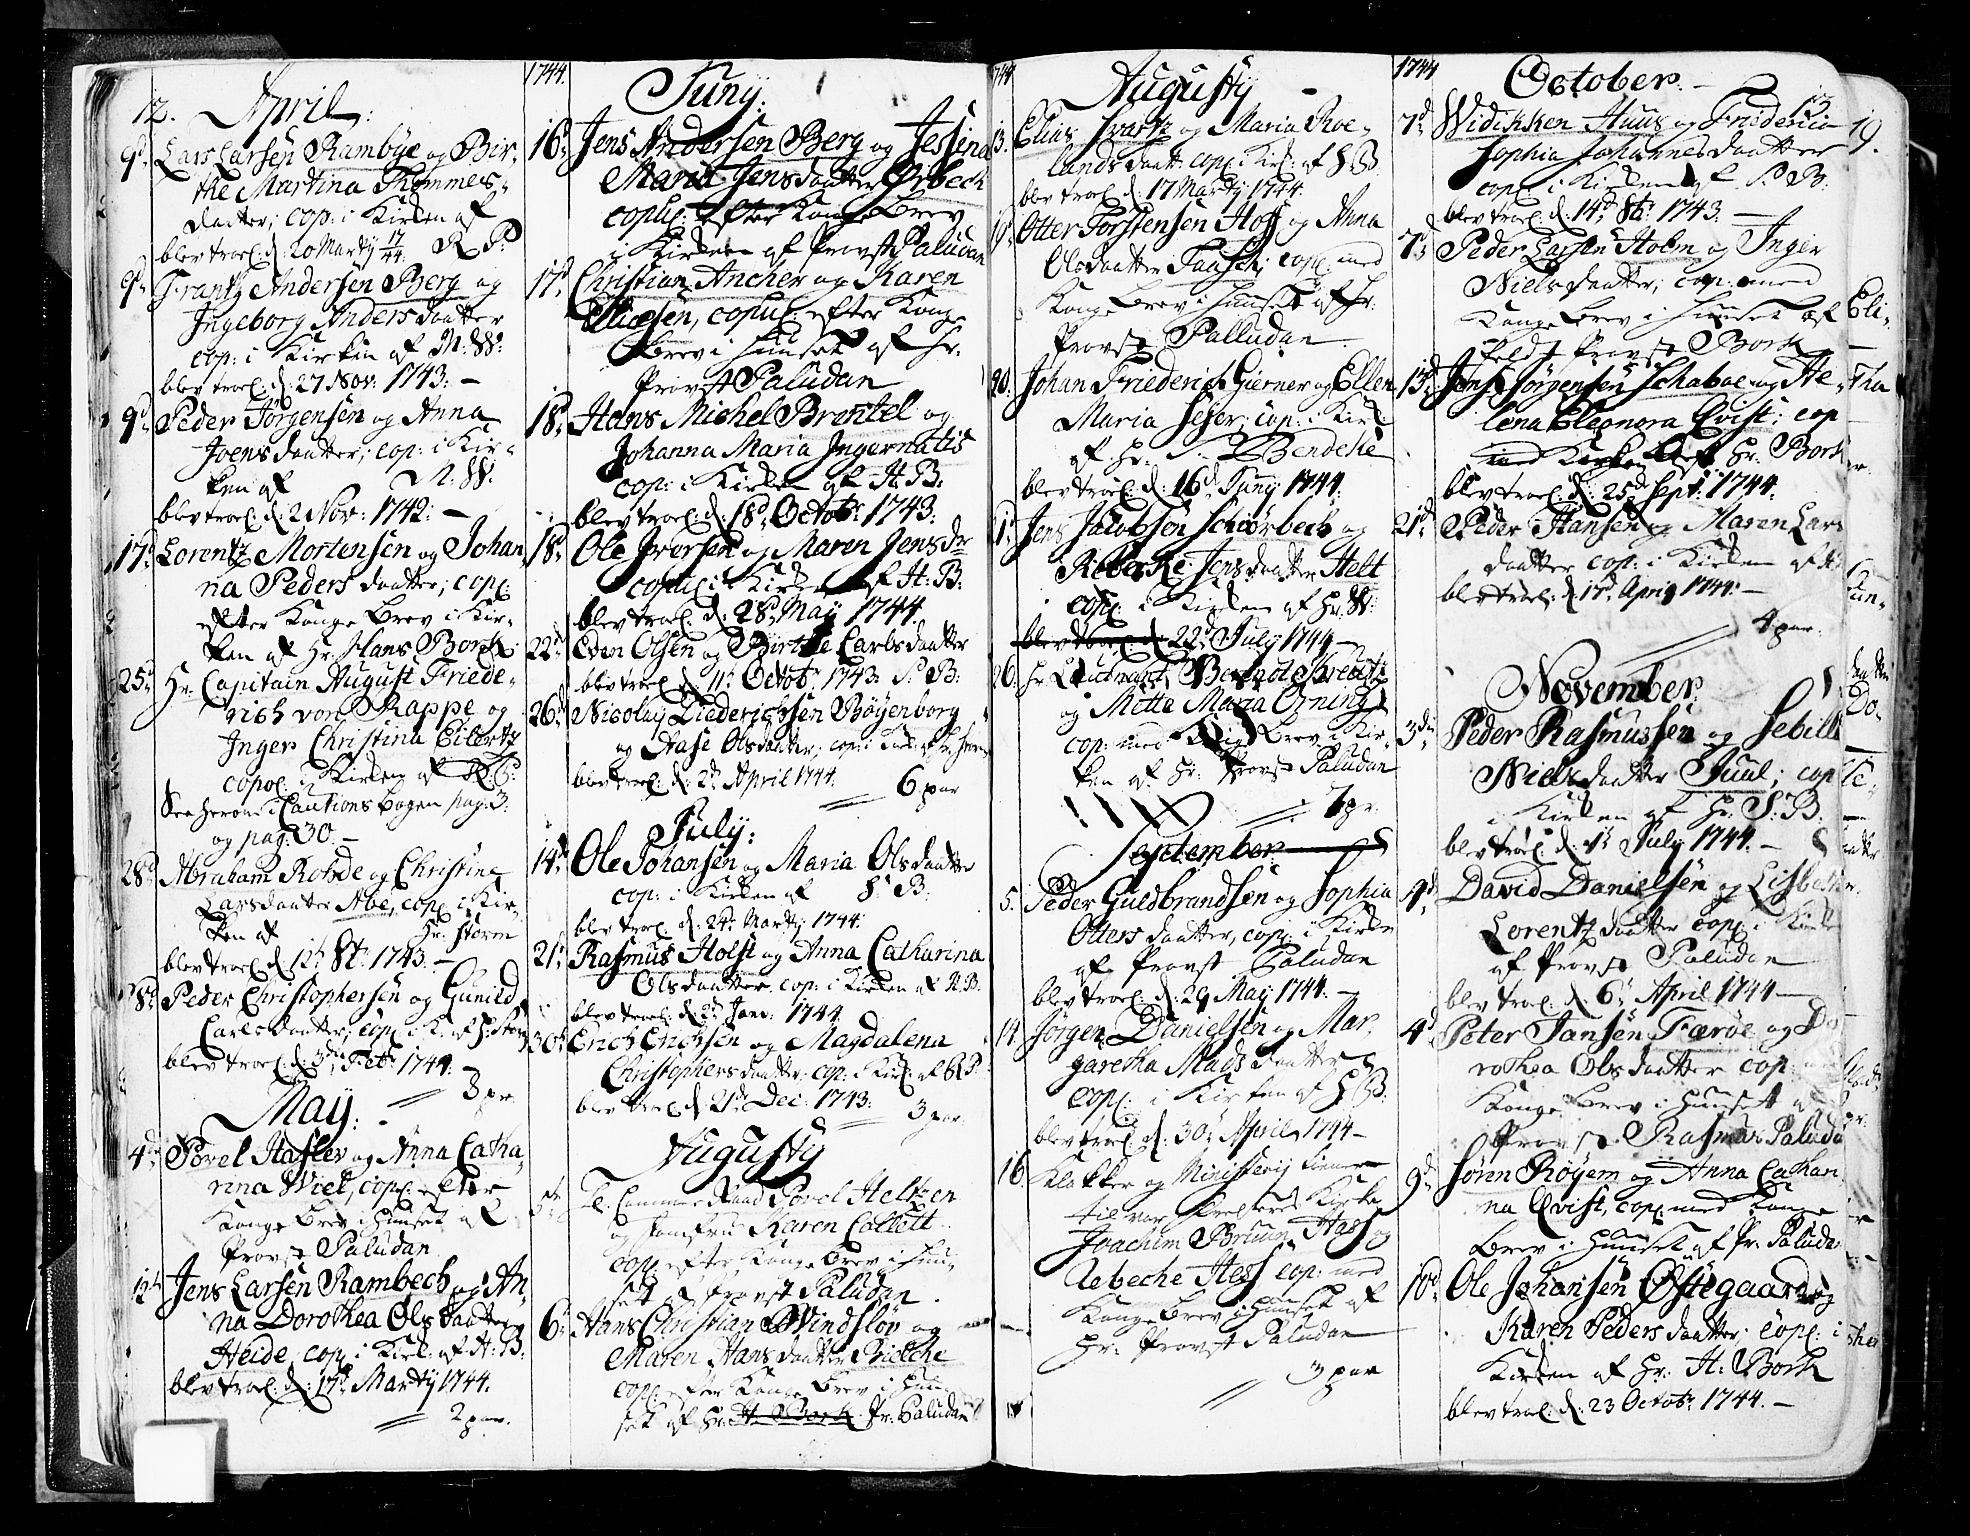 12. April:
9d Lars Larsen Rambye og Bir-
the Martina Thommes-
daatter; cop: i Kirken af
blev trol: d: 20 Martij 17/44. R P:
9d Frantz Andersen Berg og
Ingeborg Anders daatter
cop: i Kirken af M: W:
blev trol: d: 27 Nov: 1743: —
9d Peder Jörgensen og Anna
Joens daatter; cop: i Kir-
ken af M: W:
blev trol: d: 2 Nov: 1742: —
17d Lorentz Mortensen og Johan
na Peders daatter; cop:
efter Konge Brev i Kir-
ken af Hr: Hans Bork
25d Hr: Capitain August Friede-
rich von Rappe og
Inger Christina Eilertz
copol: i Kirken af R P:
See herom i Cautions bogen pag: 3:
og pag: 30 —
28d Abraham Rohde og Christine
Lars daatter Aboe, cop: i Kir-
ken af Hr: Storm
blev trol: d: 12t 8br: 1743: —
28d Peder Christophersen og Gunild
Carls daatter; cop: i K: af H: Storm
blev trol: d: 3die Feb: 1744. —
3 par
May:
4d Povel Haslev og Anna Catha-
rina Wiel, copl: efter
Konge Brev i Huuset af
Provst Paludan
12t Jens Larsen Rambech og An-
na Dorothea Ols daatter
Heide, cop: i Kirk: af H: B:
blev trol: d: 17d Martij 1744.
2 par.
1744.
Juny:
16d Jens Andersen Berg og Jessina
Maria Jens daatter Örbech
copul: efter Konge Brev
i Kirken af Provst Paludan
17d Christian Ancher og Karen
Eliesen, copul: efter Konge
Brev i Huuset af Hr:
Provst Paludan
18d Hans Michel Brentel og
Johanna Maria Ingernatis
cop: i Kirken af H: B:
blev trol: d: 18d Octob: 1743:
18d Ole Iversen og Maren Jens dr
copul: i Kirken af H: B:
blev trol: d: 28d May 1744.
22d Eden Olsen og Birthe Carls daatter
blev trol: d: 11t Octob: 1743. S: B:
26d Nicolay Diederichsen Böyenborg
og Aase Ols daatter; cop: i Kirk: af Hr: Storm
blev trol: d: 2d April 1744.
6 par
July:
14d Ole Johansen og Maria Ols daatter
cop: i Kirken af S: B:
blev trol: d: 24d Martij 1744:
21d Rasmus Holst og Anna Catharina
Ols daatter, cop: i Kirken af H: B:
blev trol: d: 2d Janv: 1744.
30t Erich Erichsen og Magdalena
Christophers daatter; cop: i Kirk: af R P.
blev trol: d: 21d Dec: 1743:
3 par
Augusty
5te Hr: Cammer Raad Povel Heltzen
og Jomfru Karen Collett
cop: efter Konge Brev i Huu-
set af Provst Paludan.
6d Hans Christian Windslöv og
Maren Hans daatter Bielche
cop: efter Konge Brev i Huu-
set af Hr: H: Bork Pr: Paludan
1744
Augusty
13. Elias Svartz og Maria Roe-
lands daatt: cop: i Kirk: af S B
blev trol: d: 17 Martij 1744.
19. Otter Torstensen Hoff og Anna
Ols daatter Fausch; cop: med
Konge Brev i Huuset af Hr:
Provst Palludan.
20. Johan Friederich Gierner og Ellen
Maria Seser; cop: i Kirk:
af Hr: Bendeke
blev trol: d: 16d Juny 1744:
21. Jens Jacobsen Schiörbech og
Rebecke Jens daatter Helt
cop: i Kirken af Hr: W:
blev trol: d: 22d July 1744 —
26. Hr: Leutnant Berndt Kreutz
og Mette Maria Orning
cop: med Konge Brev i Kir-
ken af Hr: Provst Paludan
7 pr:
September
5. Peder Guldbrandsen og Sophia
Otters daatter, cop: i Kirken
af Provst Paludan
blev trol: d: 29 May 1744. —
14. Jörgen Danielsen og Mar-
garetha Mads daatter
cop: i Kirken af H B:
blev trol: d: 30d April 1744 —
16. Klokker og Ministerij tiener
til vor Frelseres Kirke
Joachim Bruun Hass og
Rebeche Hass cop: med
Konge Brev i Huuset af
Hr: Provst Paludan
3 par
1744 October. —
13
7d Widikken Huus og Friderica
Sophia Johannes daatter
cop: i Kirken af S: B:
blev trol: d. 14d 8br: 1743. —
7d Peder Larsen Holm og Inger
Niels daatter; cop: med
Konge Brev i Huuset af
Provst Bork
15d Jens Jörgensen Schaboe og He-
lena Eleonora Qvist: cop
i Kirken af Hr: Bork
blev trol: d: 25d Sept: 1744.
21d Peder Hansen og Maren Lars
daatter cop: i Kirken af H
blev trol: d: 17d April 1744. —
4 par.
November:
3die Peder Rasmussen og Sebille
Niels daatter Juul; cop
i Kirken af Hr: S: B.
blev trol: d: 1t July 1744. —
4d David Danielsen og Lisbeth
Lorentz daatter cop: i Kirken
af Provst Paludan
blev trol: d: 6t April 1744 —
4d Peter Jansen Færöe og Do
rothea Ols daatter cop:
Konge Brev i Huuset af
Provst Rasmus Paluda
9d Sören Röyem og Anna Cathari
na Qvist, cop: med Konge
Brev i Huuset af Pr: Paluda
10d Ole Johansen Östegaard og
Karen Peders daatter; cop: i
Kirken af Hr: H: Bork
blev trol: d: 23 Octob: 1744. —
19.
Eli-